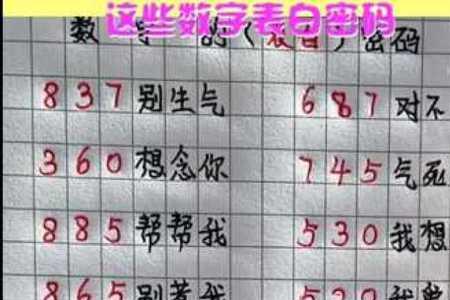 这些数字表白密码
数字的(表白)密码
837别生气 687对不
360想念你 745气死
885帮帮我 530我想
865别惹我 520我